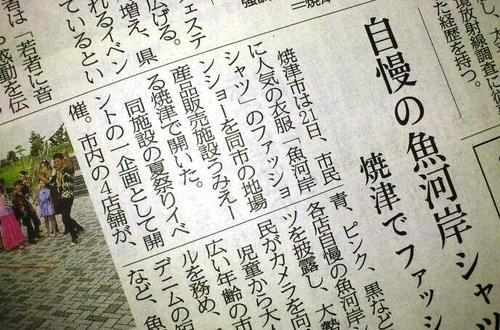 放射線調査に
た経歴を持つ。
自慢の魚河岸シャツ
焼津でファッシ
焼津市は21日、市民
に人気の衣服「魚河岸
シャツ」のファッショ
ンショーを同市の地場
産品販売施設うみえー
る焼津で開いた。
同施設の夏祭りイベ
ントの一企画として開
催。市内の4店舗が、
青、ピンク、黒など
各店自慢の魚河岸シ
ツを披露し、大勢
民がカメラを向
児童から大人
広い年齢の市
ルを務め、
デニムの短
など、魚
焼津
フェステ
広げる。
増え、県
れるイベン
ているとい
者は「若者に音
感動を伝